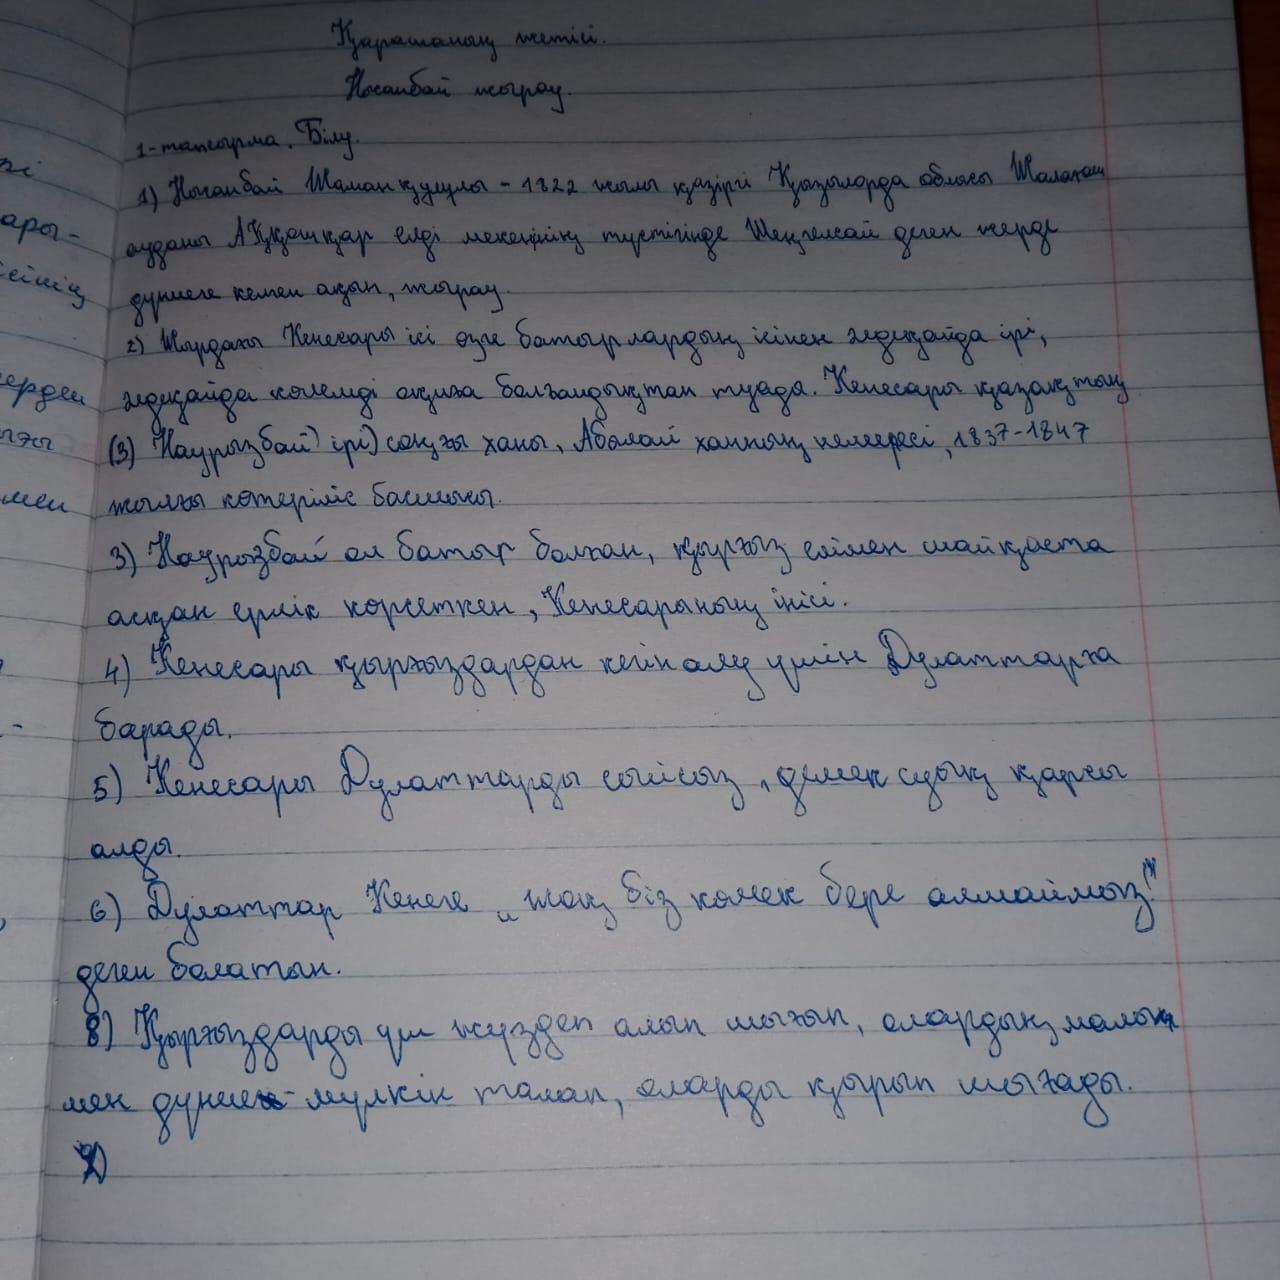 Қарашаның жетісі.
Нысанбай жырау.
1-тапсырма. Білу.
1) Нысанбай Жаманқұлұлы - 1822 жылы қазіргі Қызылорда облысы Жалағаш
ауданы Аққошқар елді мекенінің түстігінде Шеңгелсай деген жерде
дүниеге келген ақын, жырау.
2) Жырдағы Кенесары ісі өзге батырлардың ісінен әлдеқайда ірі,
әлдеқайда көлемді оқиға болғандықтан туады. Кенесары қазақтың
(3) Наурызбай) ірі) соңғы ханы, Абылай ханның немересі, 1837-1847
жылғы көтеріліс басшысы.
3) Наурызбай ол батыр болған, қырғыз елімен шайқаста
асқан ерлік көрсеткен, Кенесарының інісі.
4) Кенесары қырғыздардан кегін алу үшін Дулаттарға
барады.
5) Кенесары Дулаттарды сыйсыз, демек суық қарсы
алды.
6) Дулаттар Кенеге „жоқ біз көмек бере алмаймыз!"
деген болатын.
8) Қырғыздарды үш жүзден алып шығып, олардың малын
мен дүние-мүлкін талап, оларды қырып шығады.
ері
ары-
ісінің
ерден
ығы
мен